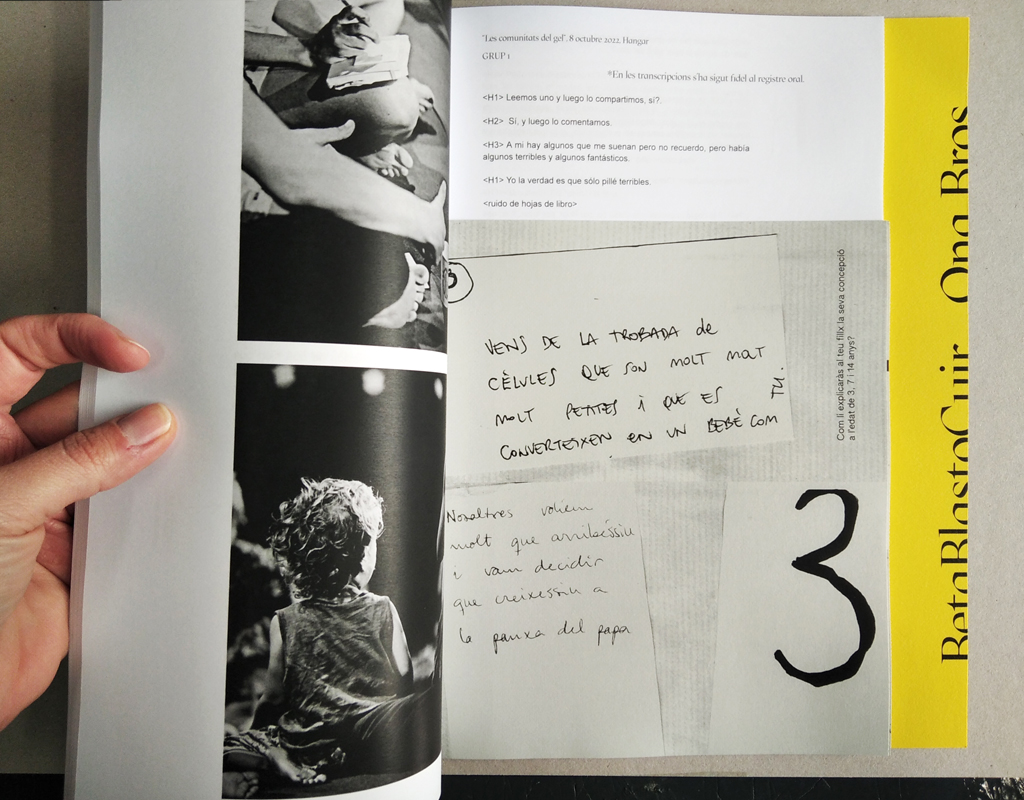 "Les comunitats del gel", 8 octubre 2022, Hangar
GRUP 1
*En les transcripcions s'ha sigut fidel al registre oral.
<H1> Leemos uno y luego lo compartimos, sí?.
<H2> Sí, y luego lo comentamos.
<H3> A mi hay algunos que me suenan pero no recuerdo, pero había
algunos terribles y algunos fantásticos.
<H1> Yo la verdad es que sólo pillé terribles.
<ruido de hojas de libro>
3
VENS DE LA TROBADA de
CÈL·LULES QUE SON MOLT MOLT
MOLT PETITES i QUE ES
CONVERTEIXEN en UN BEBÈ COM
TU.
Com li explicaràs al teu fillx la seva concepció
a l'edat de 3, 7 i 14 anys?
Nosaltres voliem
molt que arribéssiu
i vam decidir
que creixessiu a
la panxa del papa
3
BetaBlastoCuir Ona Bros